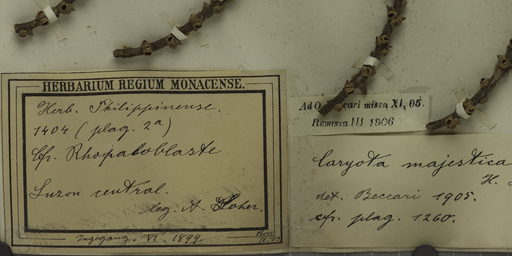 HERBARIUM REGIUM MONACENSE.
Herb. Philippinense.
1404 (plag. 2a)
Cfr. Rhopaloblaste
Luzon central.
leg. A. Loher.
Zugegang. VI. 1899.
Ad O. Beccari missa XI, 05.
Remissa III 1906
Caryota majestica
det. Beccari 1905.
cfr. plag. 1260.